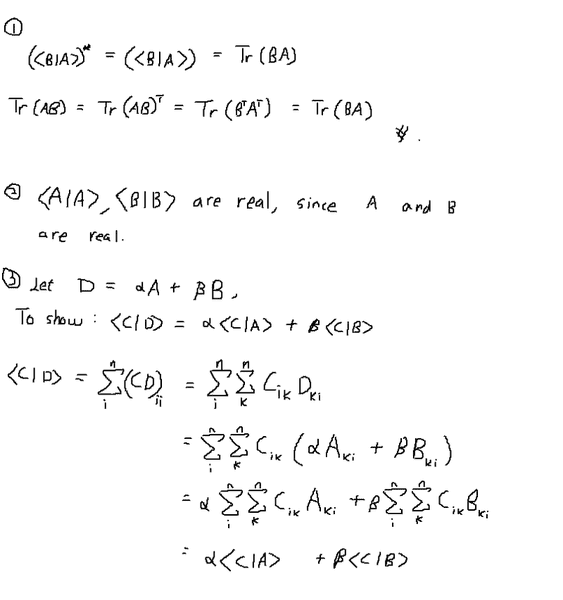 ①
(⟨B|A⟩)* = (⟨B|A⟩) = Tr(BA)
Tr(AB) = Tr(AB)ᵀ = Tr(BᵀAᵀ) = Tr(BA)
② ⟨A|A⟩, ⟨B|B⟩ are real, since A and B
are real.
③ Let D = αA + βB,
To show : ⟨C|D⟩ = α⟨C|A⟩ + β⟨C|B⟩
⟨C|D⟩ = Σᵢⁿ (CD)ᵢᵢ = Σᵢⁿ Σₖⁿ Cᵢₖ Dₖᵢ
= Σᵢⁿ Σₖⁿ Cᵢₖ (αAₖᵢ + βBₖᵢ)
= α Σᵢⁿ Σₖⁿ Cᵢₖ Aₖᵢ + β Σᵢⁿ Σₖⁿ Cᵢₖ Bₖᵢ
= α⟨C|A⟩ + β⟨C|B⟩